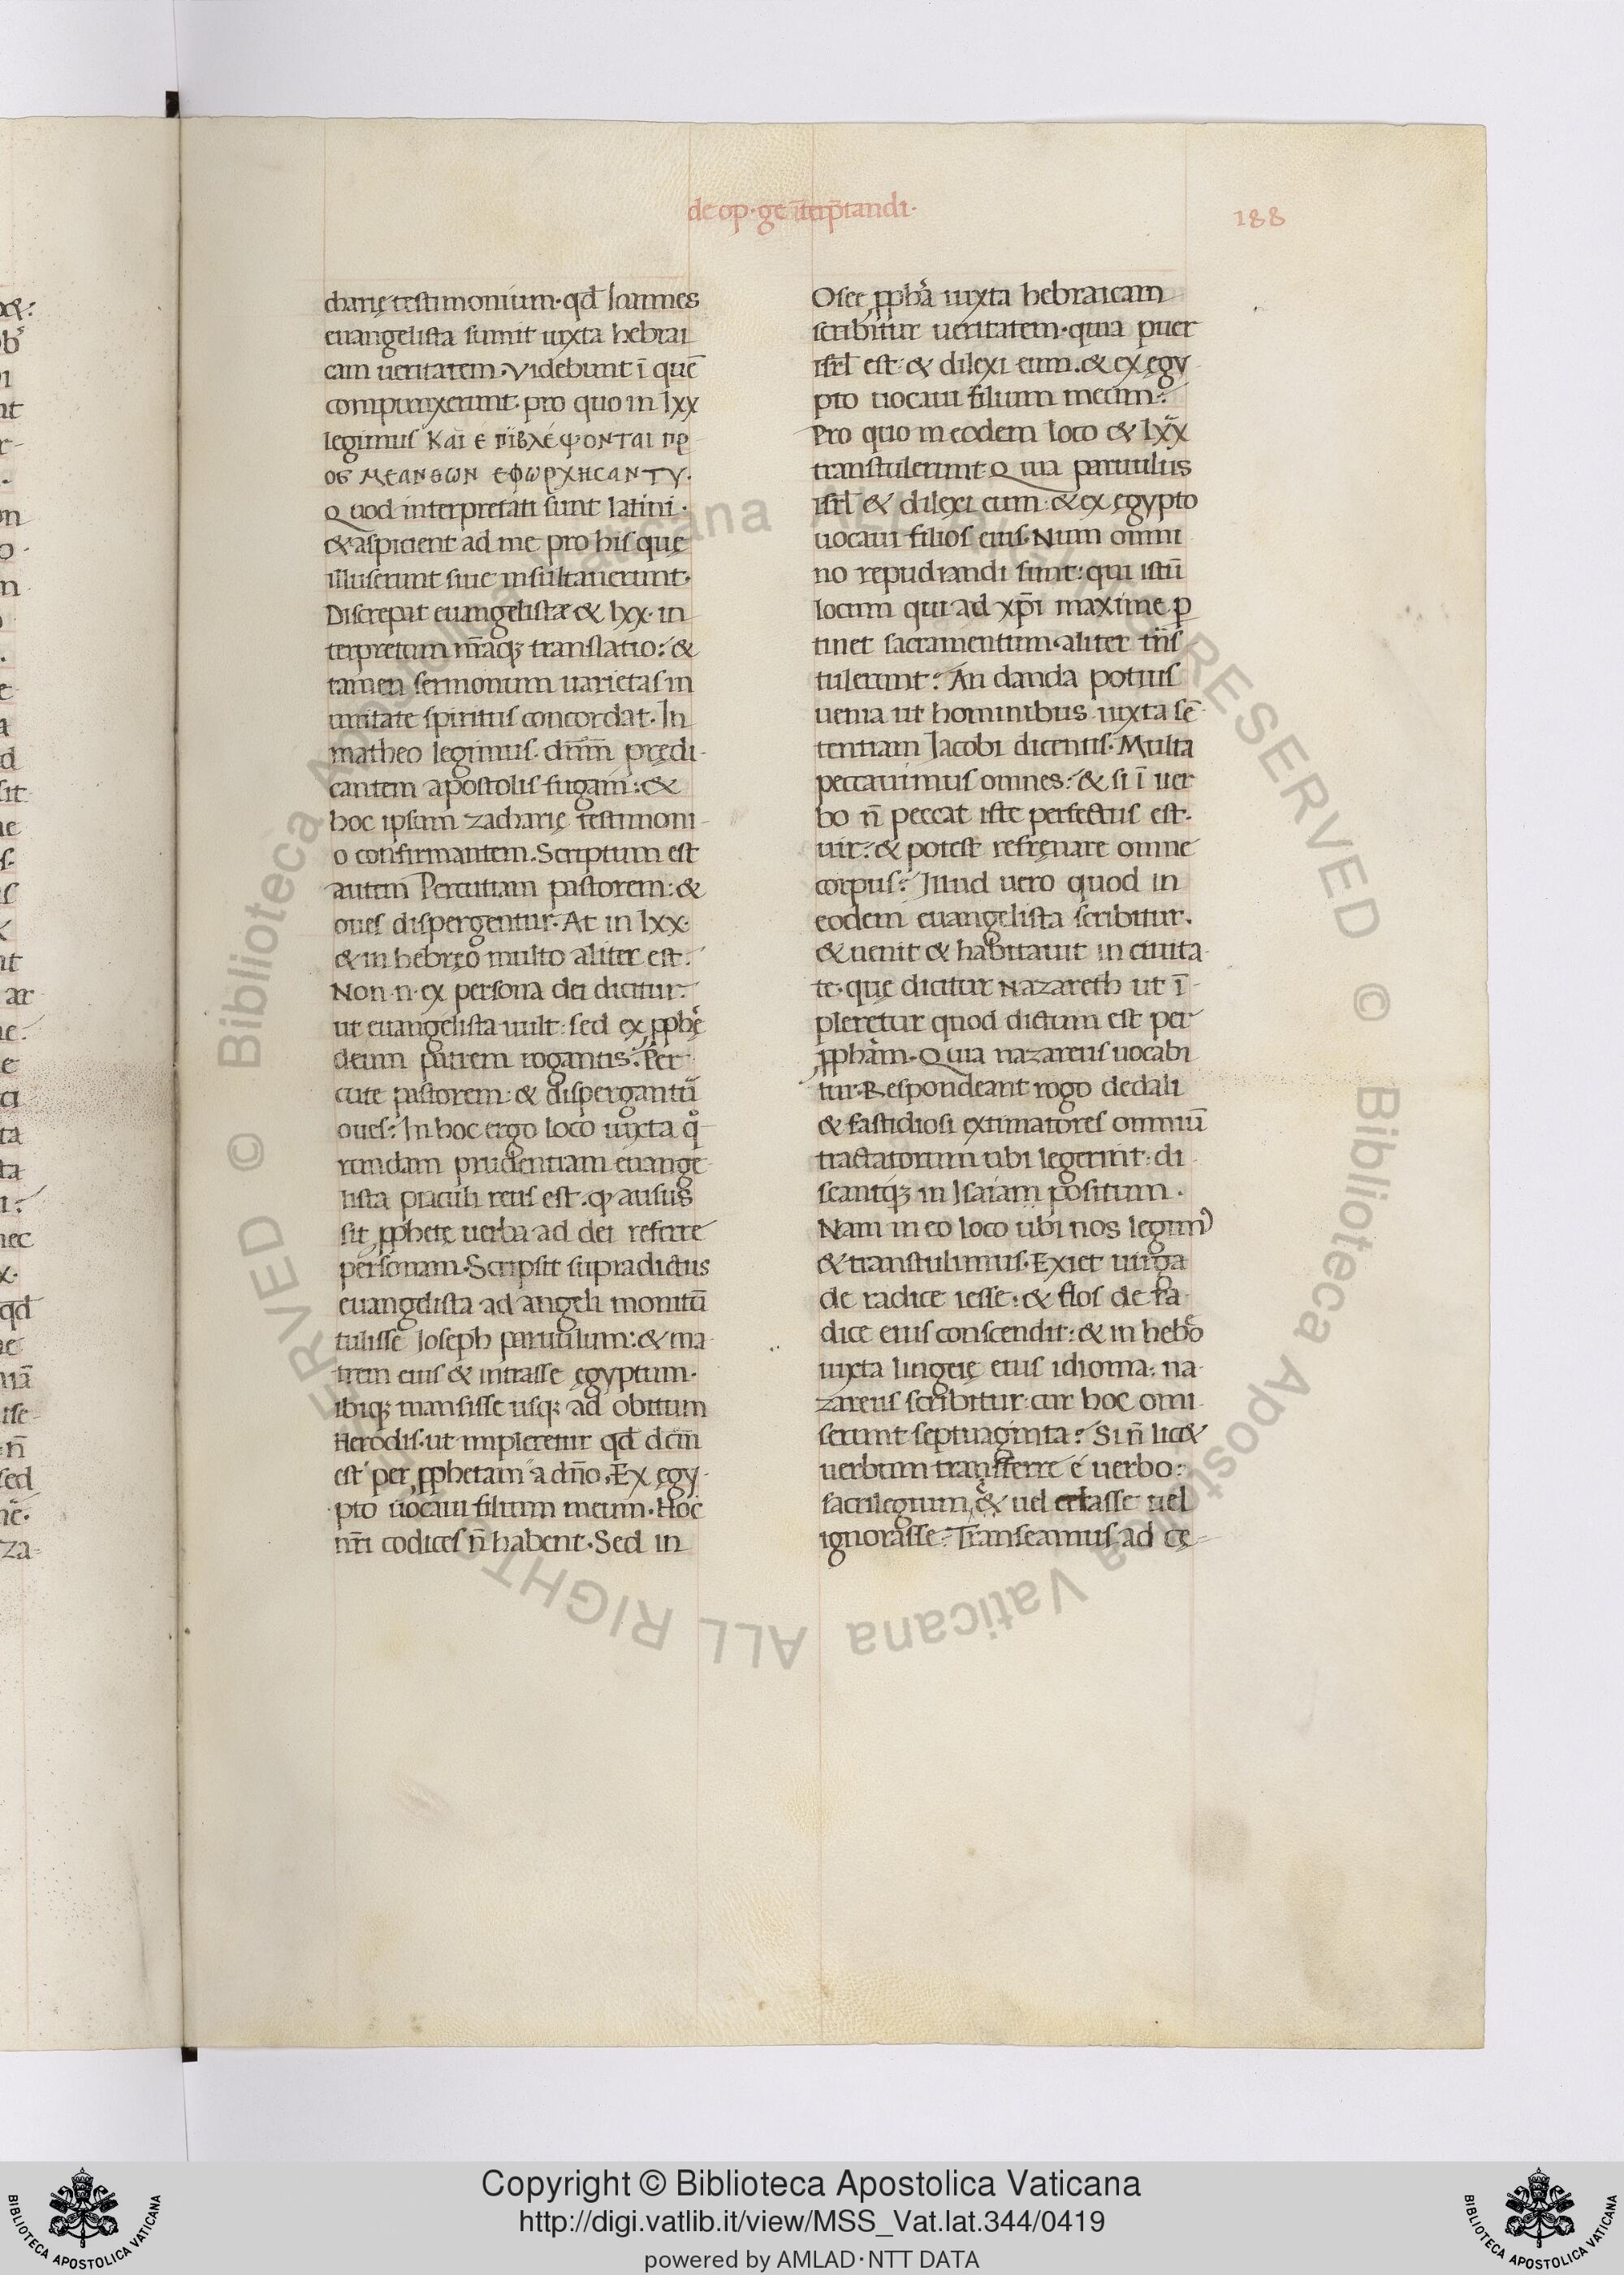 de op· ge īterp̄tandi·
188
charię testimonium· qd̄ Ioannes
euangelista sumit iuxta hebrai
cam ueritatem· Videbunt ī quē
compunxerunt· pro quo in lxx
legimus Και επιβλέψονται πρ
ος μεανθων εφωρχησαντυ·
Quod interpretati sunt latini·
& aspicient ad me pro his quę
illuserunt siue insultauerunt·
Discrepat euangelistæ & lxx· in
terpretum nr̄aq; translatio: &
tamen sermonum uarietas in
unitate spiritus concordat· In
matheo legimus· dnm̄ prędi
cantem apostolis fugam: &
hoc ipsum zacharię testimoni
o confirmantem. Scriptum est
autem Percutiam pastorem: &
oues dispergentur· At in lxx·
& in hebręo multo aliter est:
Non· n· ex persona dei dicitur:
ut euangelista uult: sed ex pphę
deum patrem rogantis: Per
cute pastorem: & dispergantur̄
oues: In hoc ergo loco iuxta q
rundam prudentiam euange
lista piaculi reus est· q ausus
sit pphetę uerba ad dei referre
personam· Scripsit supradictus
euangelista ad angeli monitū
tulisse Ioseph paruulum: & ma
trem eius & intrasse ęgyptum·
ibiq; mansisse usq; ad obitum
Herodis· ut impleretur qd̄ dcm̄
est per pphetam a dn̄o. Ex ęgy
pto uocaui filium meum· Hoc
nr̄i codices n̄ habent· Sed in
Osee ppha iuxta hebraicam
scribitur ueritatem· quia puer
isrl̄ est· & dilexi eum. & ex ęgy
pto uocaui filium meum:
Pro quo in eodem loco & lxx
transtulerunt Quia paruulus
isrl̄ & dilexi eum: & ex ęgypto
uocaui filios eius· Num omni
no repudiandi sunt: qui istū
locum qui ad xp̄i maxime p
tinet sacramentum· aliter tn̄s
tulerunt: An danda potius
uenia ut hominibus iuxta sē
tentiam Iacobi dicentis· Multa
peccauimus omnes: & si ī uer
bo n̄ peccat iste perfectus est·
uir: & potest refręnare omne
corpus: Illud uero quod in
eodem euangelista scribitur.
& uenit & habitauit in ciuita
te· quę dicitur Nazareth ut ī
pleretur quod dictum est per
ppham· Quia nazareus uocabi
tur· Respondeant rogo dedali
& fastidiosi extimatores omniū
tractatorum ubi legerint: di
scantq; in Isaiam positum·
Nam in eo loco ubi nos legim
& transtulimus· Exiet uirga
de radice iesse: & flos de ra
dice eius conscendit: & in hebo
iuxta lingęię eius idioma: na
zareus scribitur: cur hoc omi
serunt septuaginta? Si n̄ lic&
uerbum transferre e uerbo:
sacrilegium & uel cęlasse uel
ignorasse: Transeamus ad cę
Copyright © Biblioteca Apostolica Vaticana
http://digi.vatlib.it/view/MSS_Vat.lat.344/0419
powered by AMLAD·NTT DATA